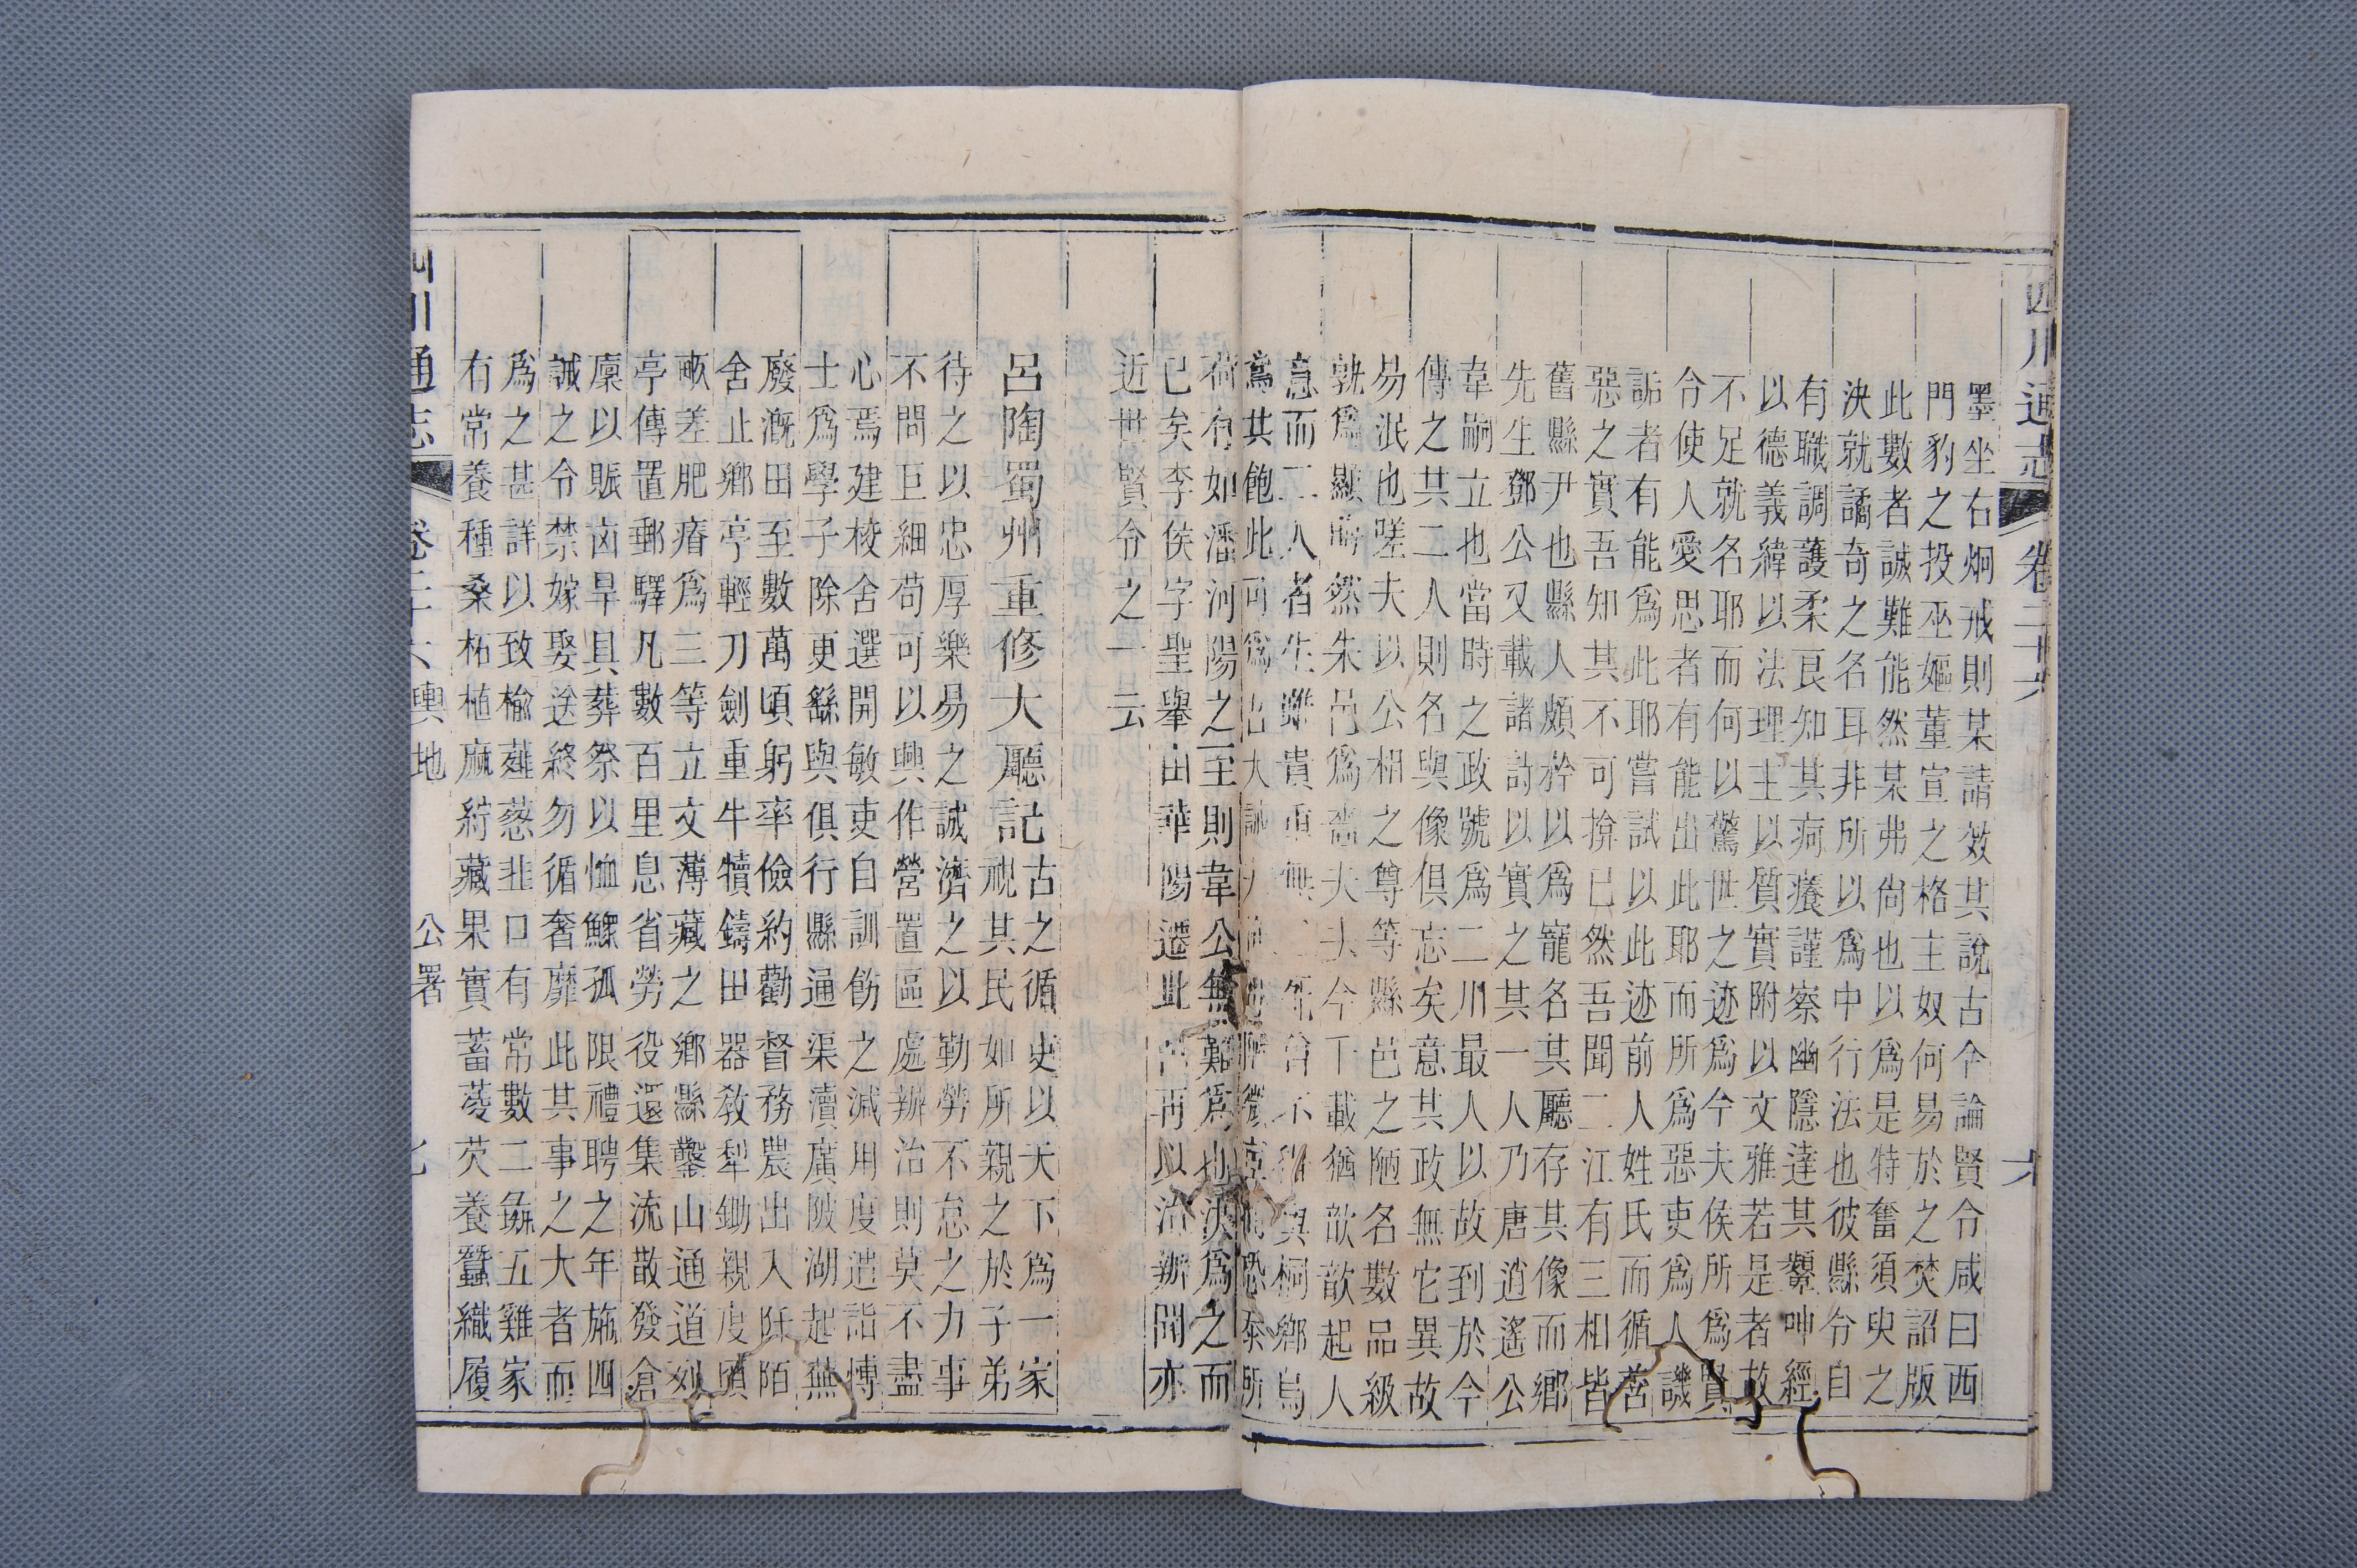 四川通志 卷二十六 六
墨坐右炯戒則某請效其說古今論賢令咸曰西
門豹之投巫嫗董宣之格主奴何易於之焚詔版
此數者誠難能然某弗尙也以爲是特奮須臾之
決就譎奇之名耳非所以爲中行法也彼縣令自
有職調護柔良知其痾癢謹察幽隱達其顰呻經
以德義緯以法理主以質實附以文雅若是者故
不足就名耶而何以驚世之迹爲今夫侯所爲賢
令使人愛思者有能出此耶而所爲惡吏爲人譏
詬者有能爲此耶嘗試以此迹前人姓氏而循善
惡之實吾知其不可揜已然吾聞二江有三相皆
舊縣尹也縣人頗矜以爲寵名其廳存其像而鄉
先生鄧公又載諸詩以實之其一人乃唐逍遙公
韋嗣立也當時之政號爲二川最人以故到於今
傳之其二人則名與像俱忘矣意其政無它異故
易泯也嗟夫以公相之尊等縣邑之陋名數品級
孰爲顯晦然朱邑爲嗇夫夫今千載猶歆歆起人
意而二人者生雖貴重無 不得與桐鄉烏
焉其飽此可爲 大 恐泰所
荷有如潘河陽之至則韋公無難爲 爲之而
已矣李侯字聖舉由華陽遷此 再以治辦聞亦
近世賢令之一云
呂陶蜀州重修大廳記 古之循吏以天下爲一家
視其民如所親之於子弟
待之以忠厚樂易之誠濟之以勤勞不怠之力事
不問巨細苟可以興作營置區處辦治則莫不盡
心焉建校舍選開敏吏自訓飭之減用度遣詣博
士爲學子除更繇與俱行縣通渠瀆廣陂湖起蕪
廢漑田至數萬頃躬率儉約勸督務農出入阡陌
舍止鄉亭輕刀劍重牛犢鑄田器敎犁鋤親度頃
畝差肥瘠爲三等立文薄藏之鄉縣鑿山通道列
亭傳置郵驛凡數百里息省勞役還集流散發倉
廩以賑凶旱具葬祭以恤鰥孤限禮聘之年施四
誠之令禁嫁娶送終勿循奢靡此其事之大者而
爲之甚詳以致楡薤葱韭口有常數二彘五雞家
有常養種桑柘植麻紵藏果實蓄菱芡養蠶織履
四川通志 卷二十六 輿地 公署 七